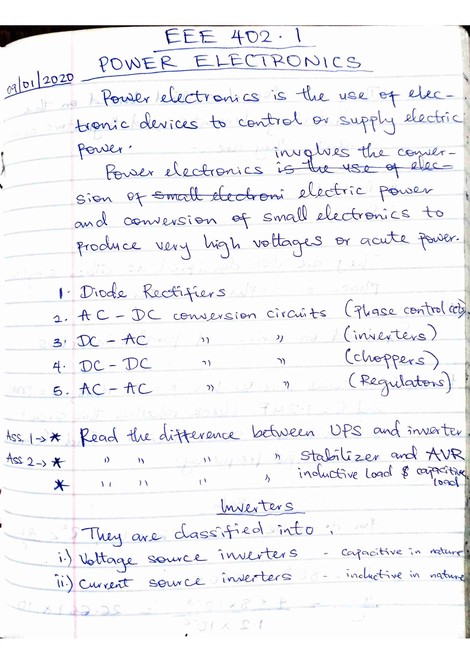 EEE 402.1
POWER ELECTRONICS
09/01/2020
Power electronics is the use of elec-
tronic devices to control or supply electric
power.
involves the conver-
Power electronics is the use of elec-
sion of small electroni electric power
and conversion of small electronics to
produce very high voltages or acute power.
1. Diode Rectifiers
2. AC - DC conversion circuits (phase control ccts).
3. DC - AC " " (inverters)
4. DC - DC " " (choppers)
5. AC - AC " " (Regulators)
Ass. 1-> * Read the difference between UPS and inverter.
Ass 2-> * " " " " Stabilizer and AVR
* " " " " inductive load & capacitive
load
Inverters
They are classified into;
i.) Voltage source inverters - capacitive in nature
ii.) Current source inverters - inductive in nature